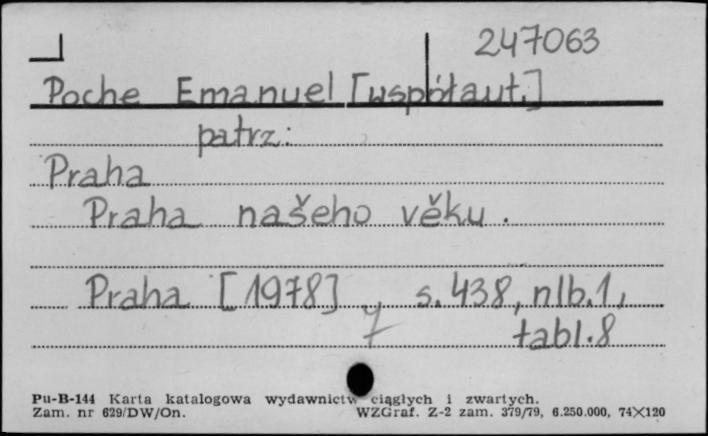 247063
Poche Emanuel [współaut.]
patrz:
Praha
Praha našeho věku.
Praha [1978] s. 438, nlb. 1,
tabl. 8
Pu-B-144 Karta katalogowa wydawnictw ciągłych i zwartych.
Zam. nr 629/DW/On. WZGraf. Z-2 zam. 379/79, 6.250.000, 74×120